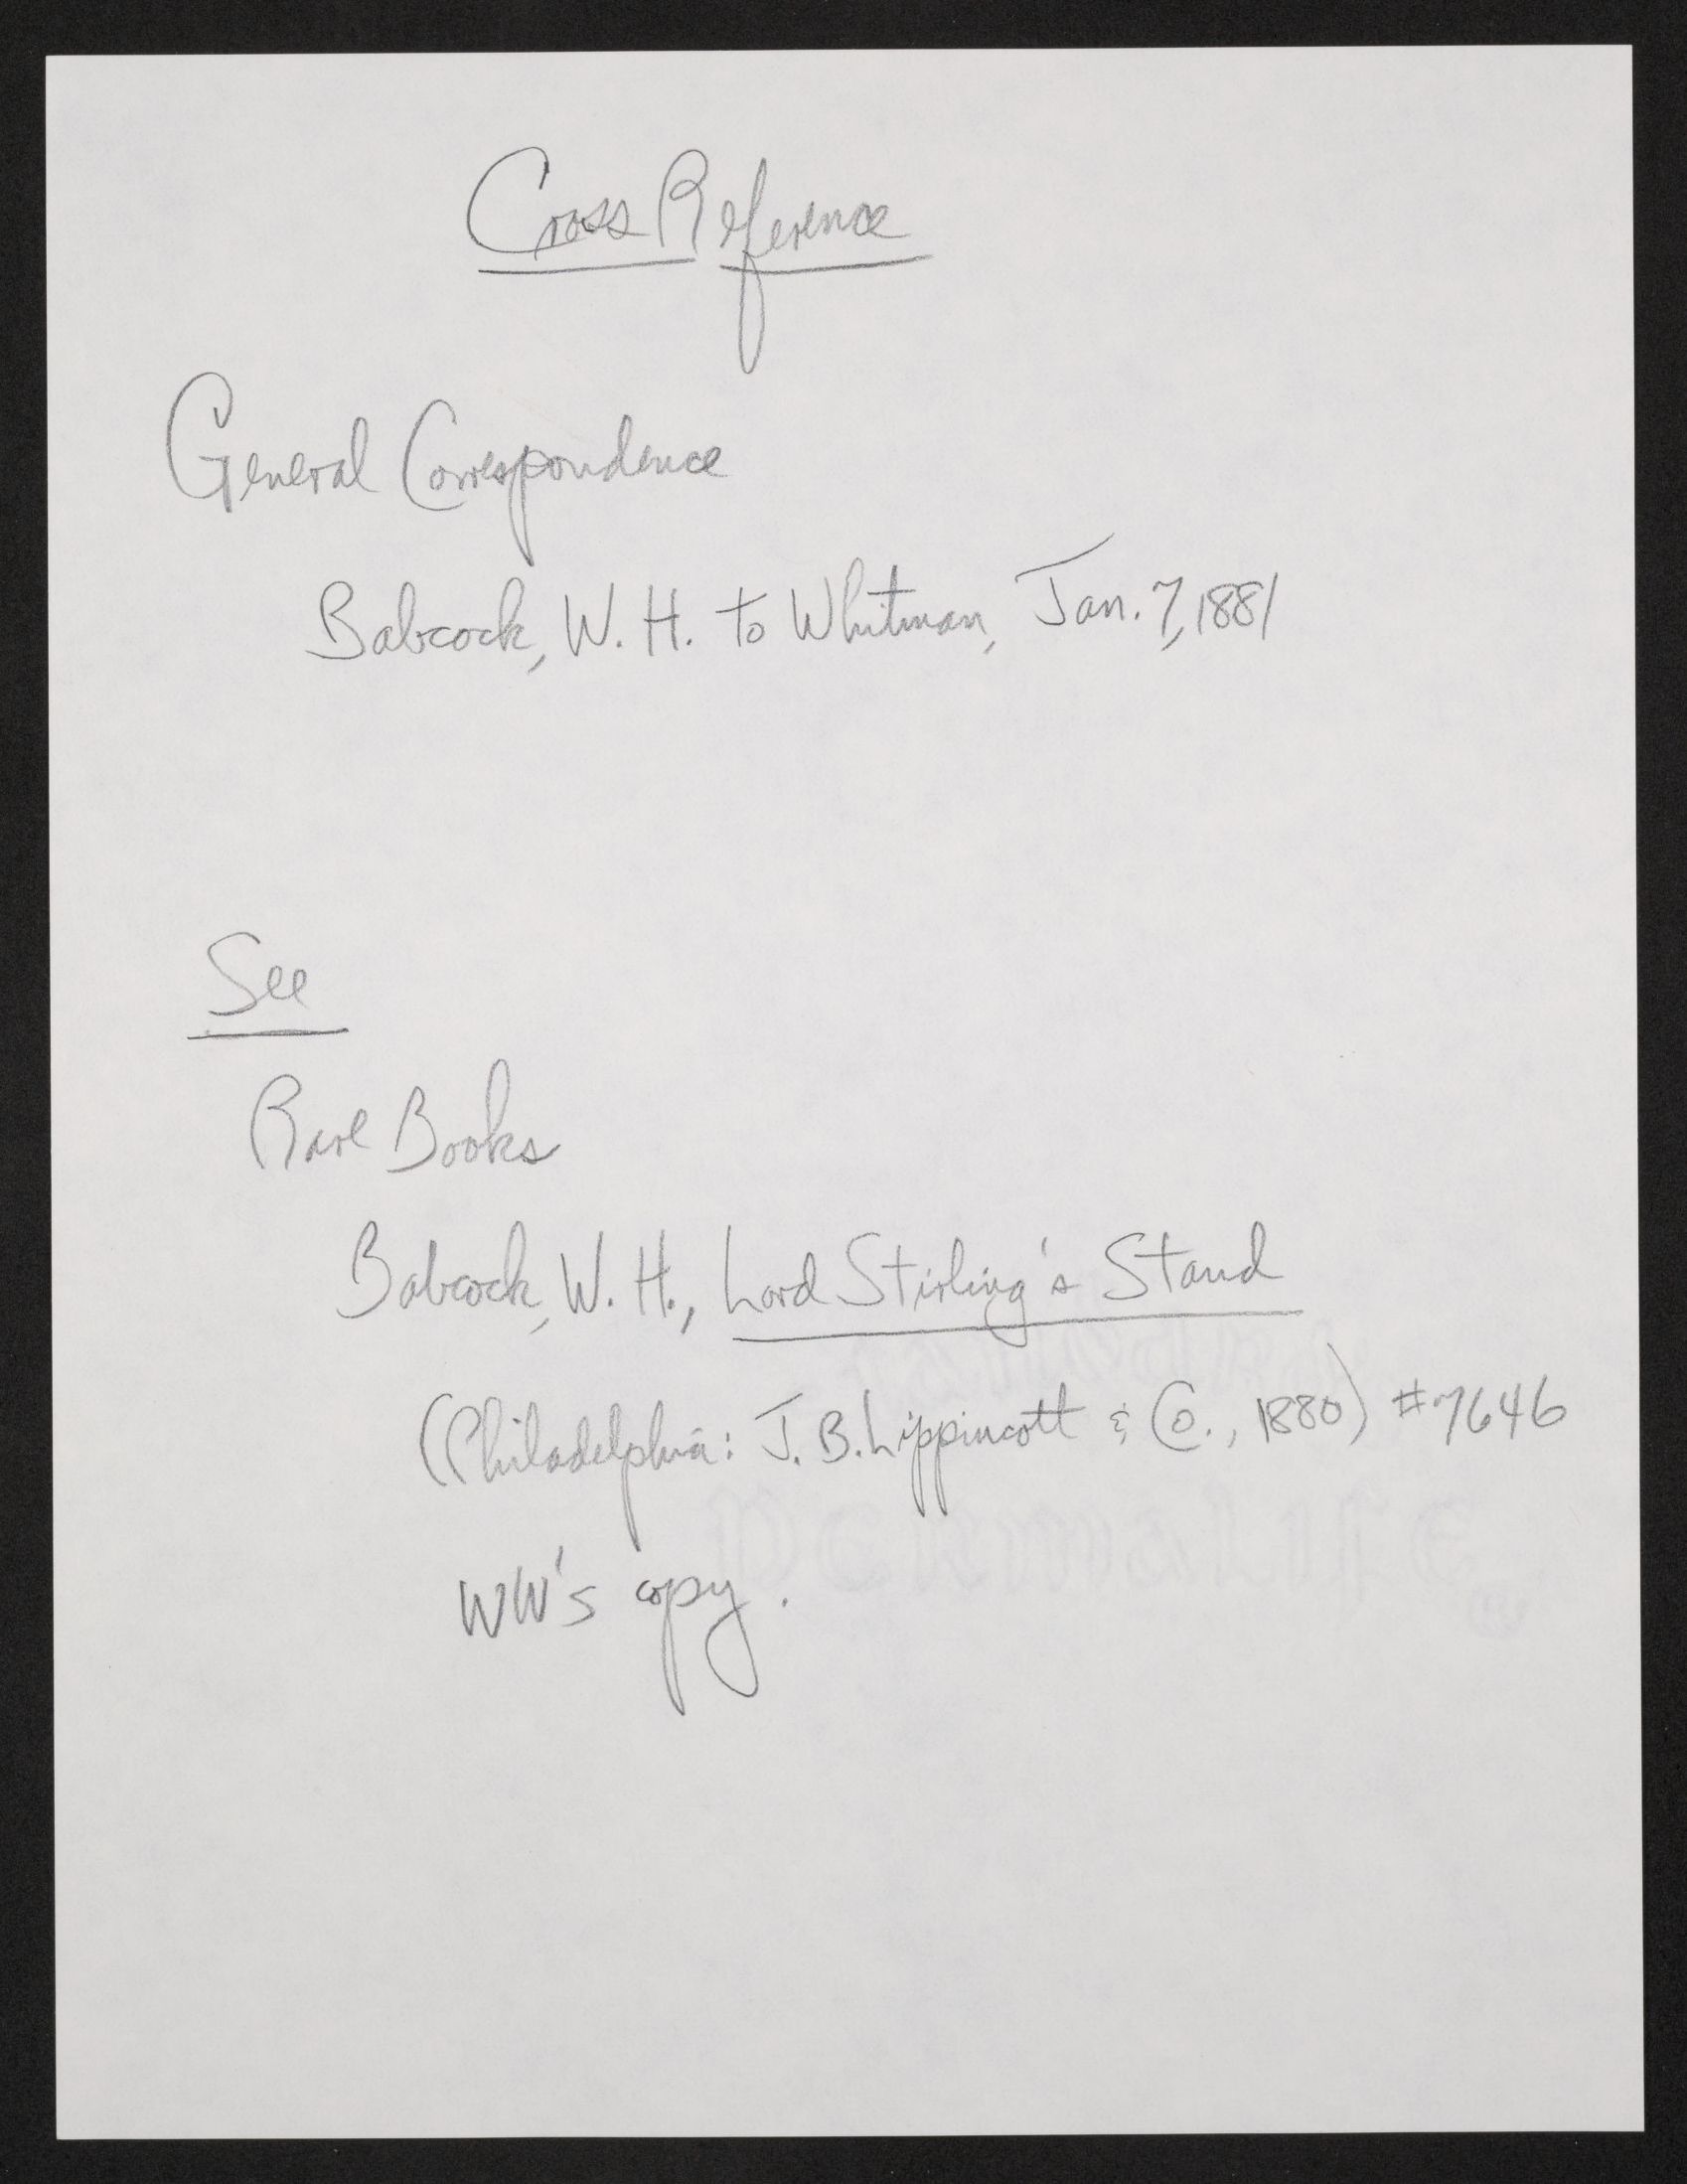 Cross Reference
General Correspondence
Babcock, W. H. to Whitman, Jan. 7, 1881
See
Rare Books
Babcock, W. H., Lord Stirling's Stand
(Philadelphia: J. B. Lippincott & Co., 1880) #7646
WW's copy.